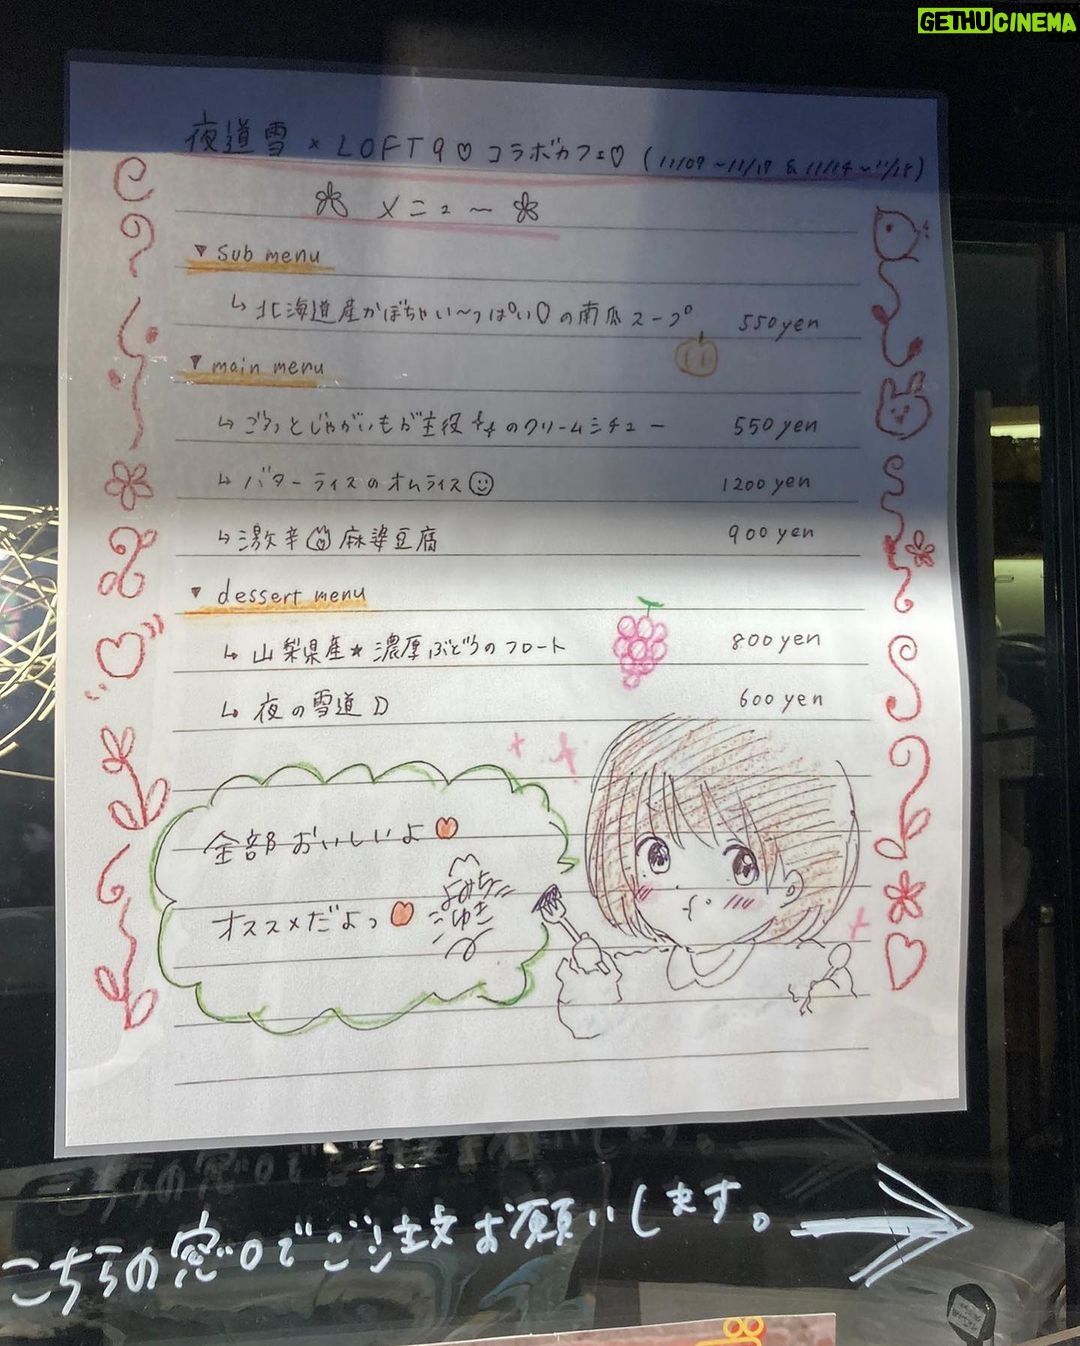 GETHUCINEMA
夜道雪×LOFT9♡コラボカフェ♡(11/09~11/17 & 11/14~11/18)
メニュ〜
▼ sub menu
↳北海道産かぼちゃい〜っぱい♡の南瓜スープ 550yen
▼ main menu
↳ごろっとじゃがいもが主役のクリームシチュー 550yen
↳バターライスのオムライス☺ 1200yen
↳激辛麻婆豆腐 900yen
▼ dessert menu
↳山梨県産★濃厚ぶどうのフロート 800yen
↳夜の雪道 600yen
全部おいしいよ
オススメだよっ
よみち
ゆき
こちらの窓口でご注文お願いします。→